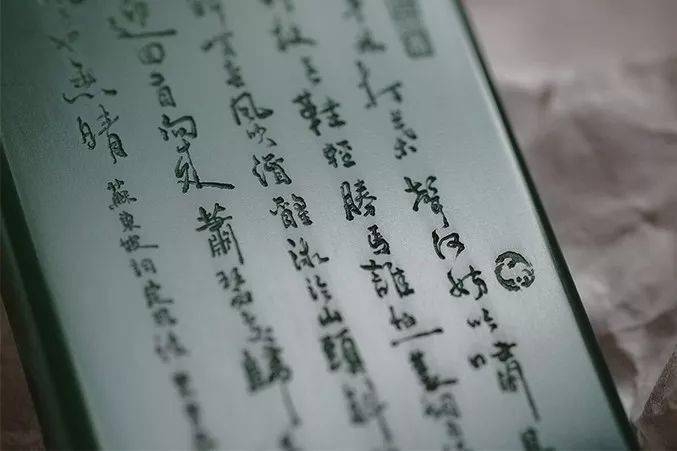 林打葉聲何妨吟嘯且
芒鞋輕勝馬誰怕一蓑烟
春風吹酒醒微冷山頭斜
迎回首向來蕭瑟處歸
也無晴
蘇東坡詞定風波